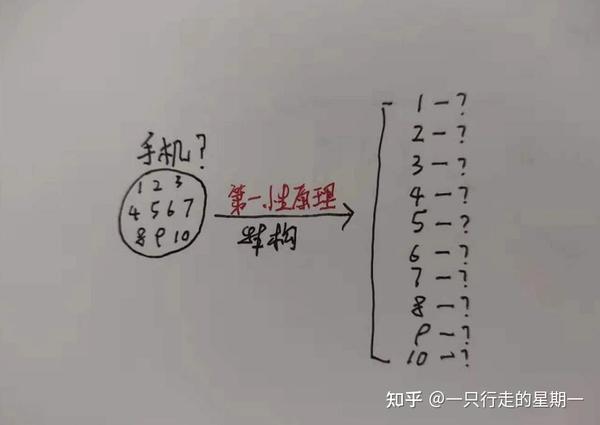 手机?
1 2 3
4 5 6 7
8 9 10
第一性原理
1-?
2-?
3-?
4-?
5-?
6-?
7-?
8-?
9-?
10-?
知乎 @一只行走的星期一